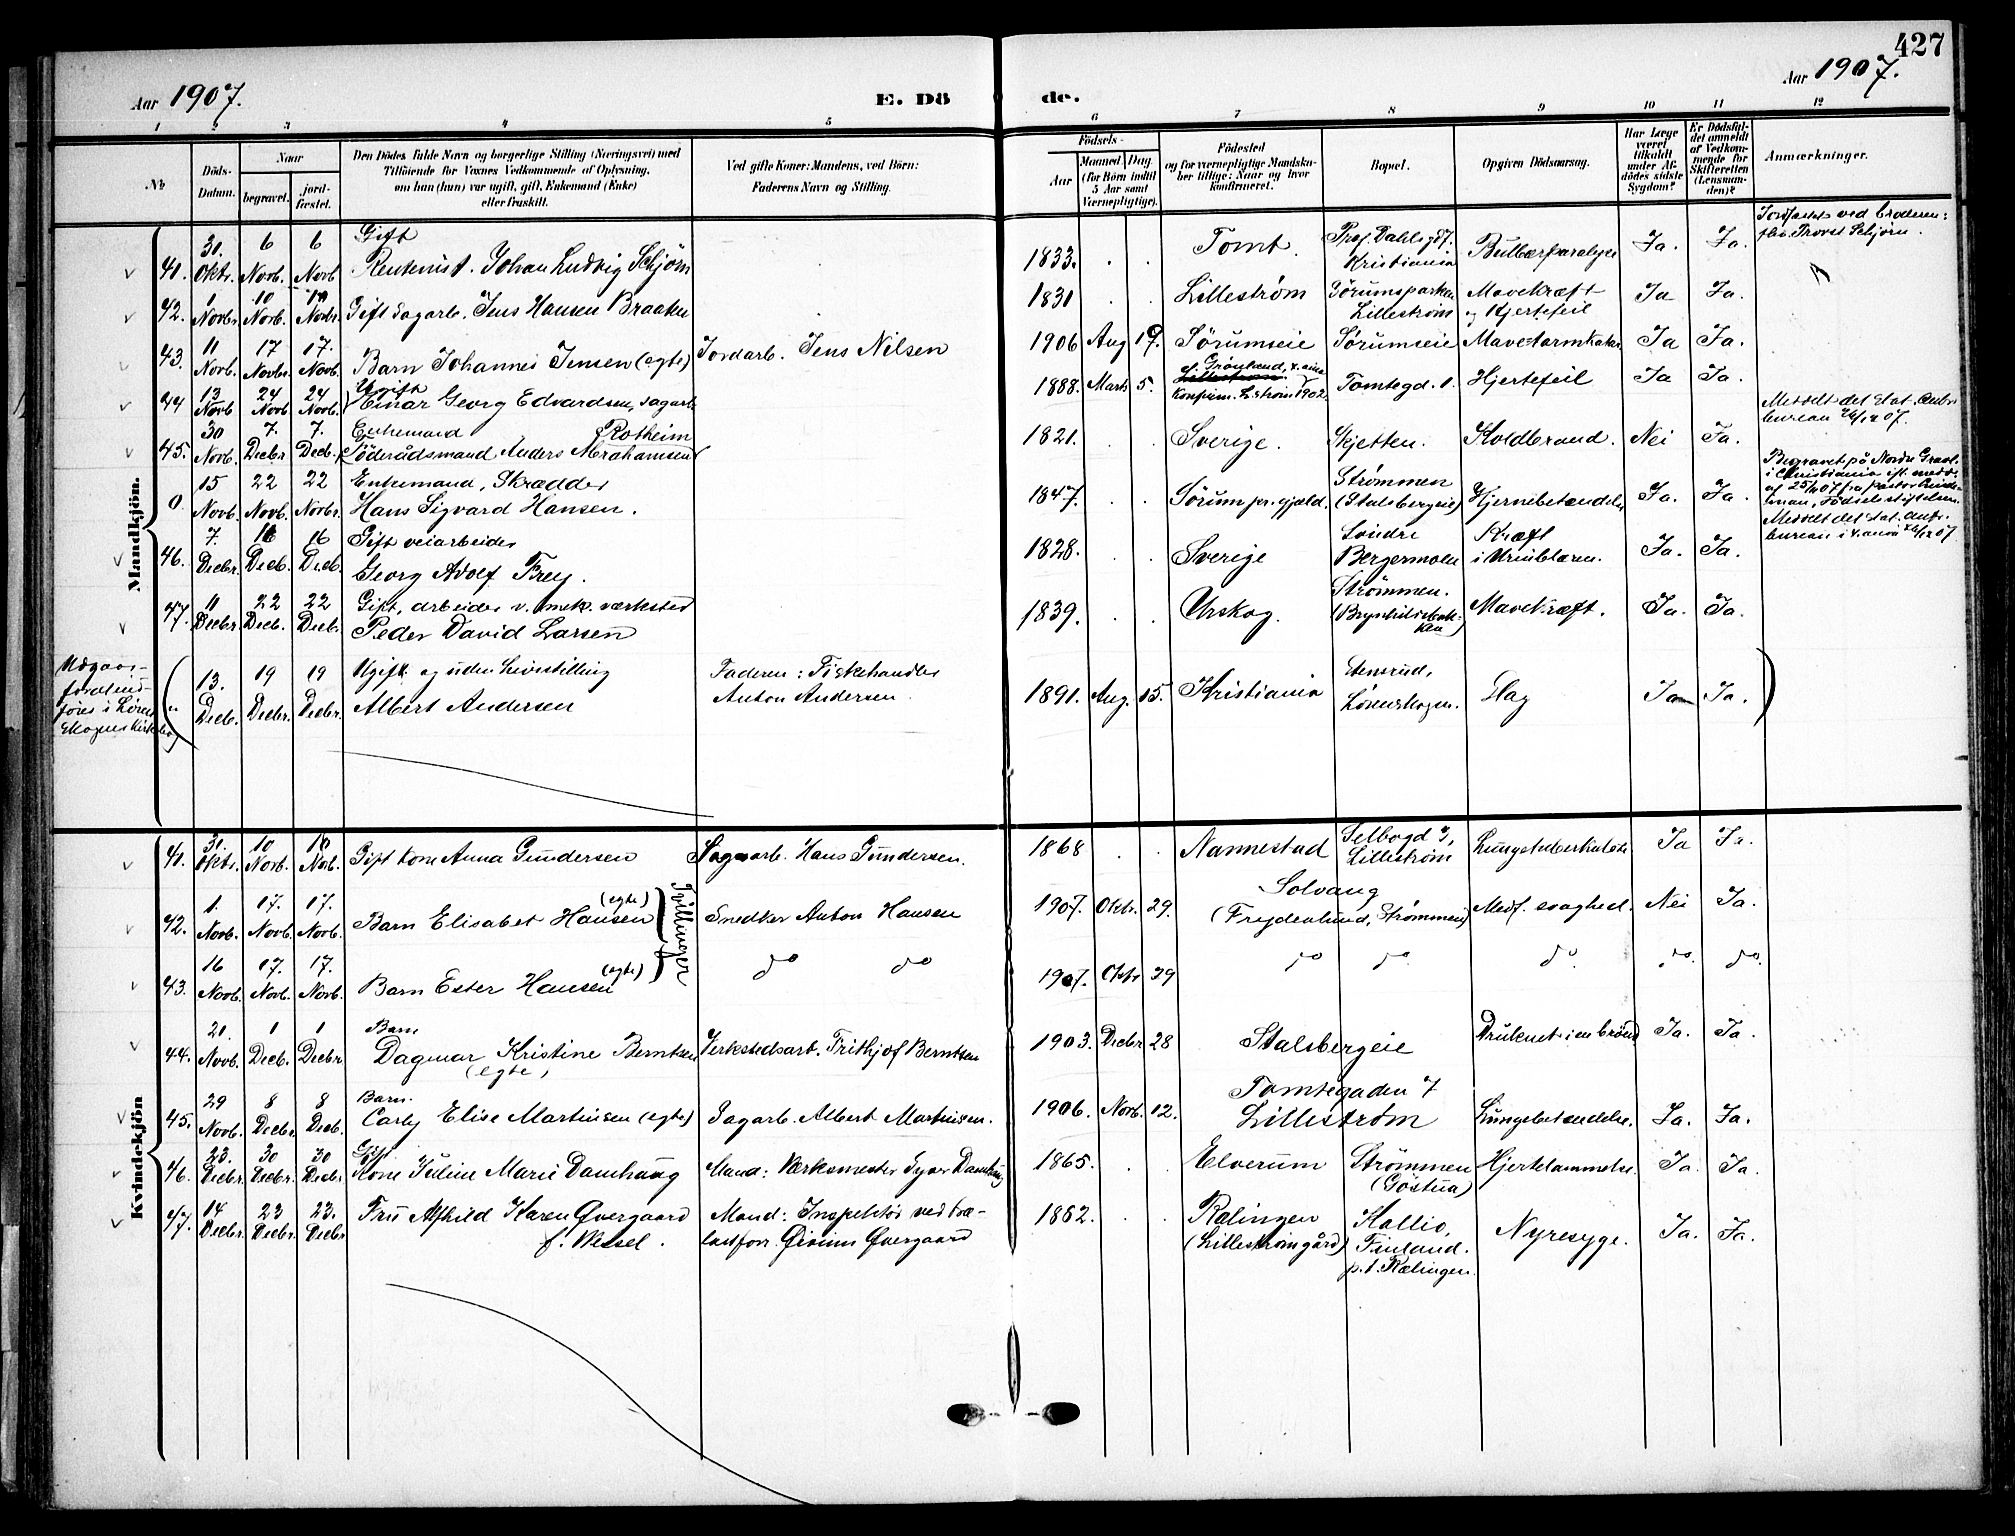 427
Aar 1907.
E. Dö
de.
Aar 1907.
1 2 3 4 5 6 7 8 9 10 11 12
No
Döds-Datum.
Naar
begravet.
jord-fæstet.
Den Dödes fulde Navn og borgerlige Stilling (Næringsvei) med
Tilföiende for Voxnes Vedkommende af Oplysning,
om han (hun) var ugift, gift, Enkemand (Enke)
eller fraskilt.
Ved gifte Koner: Mandens, ved Börn:
Faderens Navn og Stilling.
Födsels-
Aar
Maaned (for Börn indtil 5 Aar samt Værnepligtige).
Dag
Födested
og for værnepligtige Mandska-
ber tillige: Naar og hvor
konfirmeret.
Bopæl.
Opgiven Dödsaarsag.
Har Læge været tilkaldt under Afdödes sidste Sygdom?
Er Dödsfaldet anmeldt af Vedkommende for Skifteretten (Lensmanden)?
Anmærkninger.
Mandkjön.
41. 30. Oktr. 6 Novb. 6 Novb Gift Rentenist. Johan Ludvig Schjörn 1833. Tomt. Prof. Dahlsgdt. Kristiania Bulbærparalyse Ja. Ja. Jordfæstet ved broderen: Provst Schjörn.
42. 1 Novbr. 10 Novb. 10 Novbr. Gift Sagarb. Jens Hansen Braaten 1831 Lilleström Sörumsparken Lilleström Mavekræft og Hjertefeil Ja Ja.
43. 11 Novb. 17 Novbr. 17. Novb. Barn Johannes Jensen (egte) Jordarb. Jens Nilsen 1906 Aug 19. Sörumseie Sörumseie Mavetarmkatar Ja Ja.
44 13 Novb 24 Novb 24 Novb. Ugift Einar Georg Edvardsen, sagarb. 1888. Marts 5. Grönland, Konfirm. L.ström 1902. Tomtegd. 1. Hjertefeil Ja Ja.
45. 30 Novb. 7. Decbr 7. Decb. Enkemand Föderådsmand Anders Abrahamsen Rotheim 1821. Sverige. Skjetten. Koldbrand. Nei Ja. Meddelt det stat. Centr. bureau 26/12 07.
0. 15 Novb. 22 Novb. 22 Novbr. Enkemand, Skrædder Hans Sigvard Hansen. 1847. Sörum pr.gjæld. Strömmen (Stalsbergeie) Hjernebetændelse Ja. Ja. Begravet på Nordre Gravl. i Christiania ifl. medd. af 25/11 07 fra pastor Födselsstiftelsen.
46. 7. Decbr. 16 Decb. 16 Decb. Gift veiarbeider Georg Adolf Frey. 1828. Sverige Söndre Bergermoen Kræft i Urinblæren. Ja. Ja. Meddelt det stat. centr. bureau i X.ania 26/12 07
47. 11 Decbr. 22 Decb. 22 Decb. Gift, arbeider v. mek. værksted Peder David Larsen 1839. Urskog. Strömmen. (Brynhildsbakken) Mavekræft. Ja. Ja.
Lörenskogens Kirkebog
13. Decb. 19 Decbr. 19 Decbr. Ugift og uden Livsstilling Albert Andersen Faderen: Fiskehandler Anton Andersen. 1891. Aug. 15. Kristiania Stensrud, Lörenskogen. Slag Ja Ja.
Kvindekjön
41. 31. Oktr. 10 Novb. 10 Novb. Gift Kone Anna Gundersen Sagarb. Hans Gundersen. 1868 Nannestad Selbogd 3, Lilleström Lungetuberkulose Ja Ja.
42. 1. Novb. 17. Novb. 17. Novb. Barn Elisabet Hansen (egte) Snedker Anton Hansen 1907. Oktr. 29. Solvang (Frydenlund, Strömmen) Medf. svaghed. Nei Ja.
Tvillinger
43. 16 Novb. 17. Novb. 17. Novb. Barn Ester Hansen (egte) do do 1907. Oktr 29 do do. do. do. do.
44. 21. Novb. 1 Decb. 1 Decbr. Barn Dagmar Kristine Berntsen (egte) Verkstedsarb. Frithjof Berntsen 1903. Decbr 28 Stalsbergeie Druknet i en brönd Ja. Ja.
45. 29 Novb. 8 Decbr. 8 Decb. Barn. Carly Elise Martinsen (egte) Sagarb. Albert Martinsen. 1906. Novb. 12. Tomtegaden 7 Lilleström Lungebetændelse. Ja. Ja.
46. 23. Decbr. 30 Decbr. 30 Decbr. Gift Kone Juline Marie Damhaug Mand: Værksmester Syver Damhaug 1865. Elverum Strömmen (Göstua) Hjertelammelse. Ja. Ja.
47. 14 Decbr. 23 Decbr. 23. Decbr Fru Alfhild Karen Övergaard f. Wessel. Mand: Inspektör ved træ-lastforr. Öivinn Övergaard 1862. Rælingen (Lilleströmgård) Kallio, Finland. p.t. Rælingen. Nyresyge. Ja. Ja.